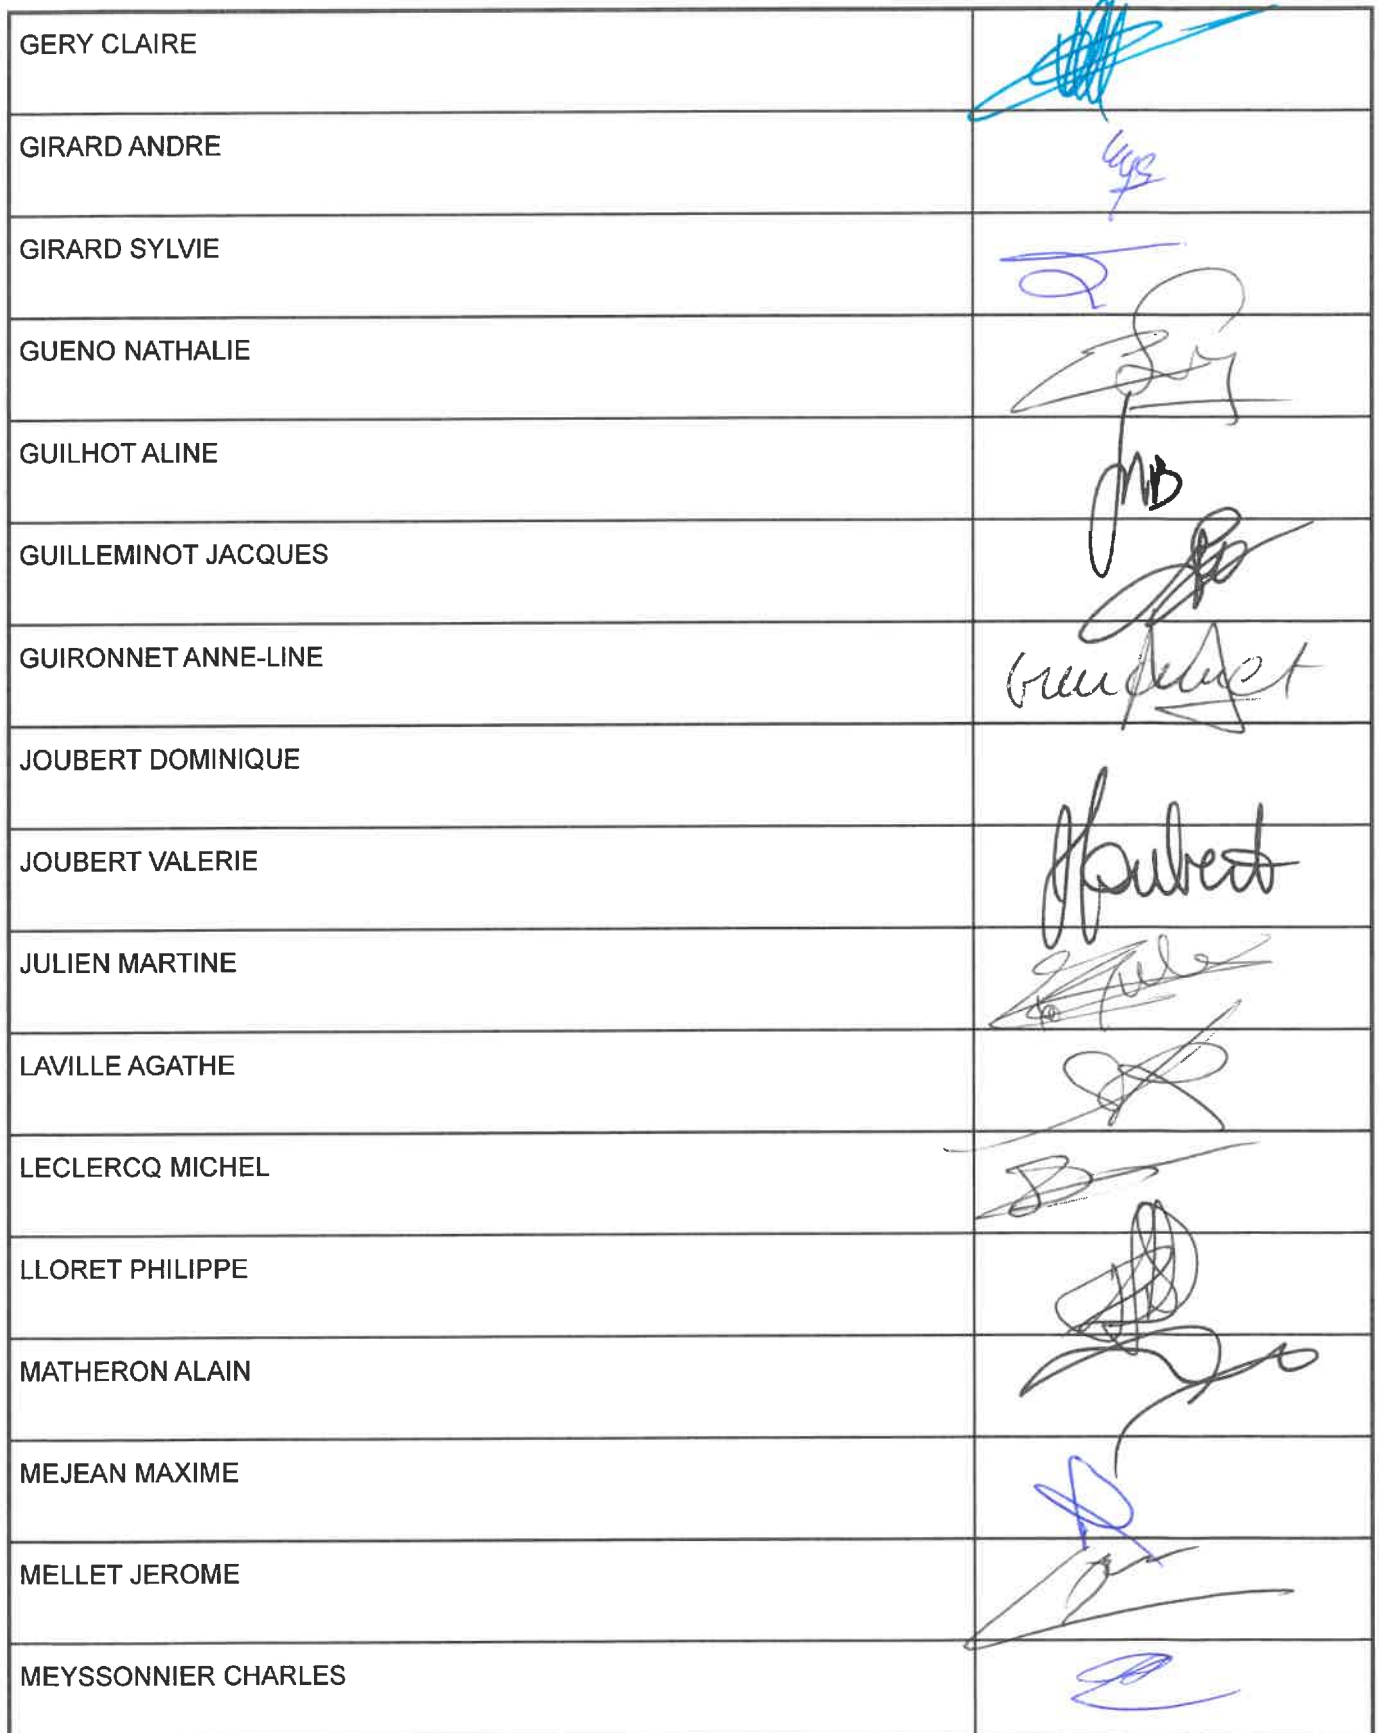 GERY CLAIRE
GIRARD ANDRE
GIRARD SYLVIE
GUENO NATHALIE
GUILHOT ALINE
GUILLEMINOT JACQUES
GUIRONNET ANNE-LINE
JOUBERT DOMINIQUE
JOUBERT VALERIE
Joubert
JULIEN MARTINE
LAVILLE AGATHE
LECLERCQ MICHEL
LLORET PHILIPPE
MATHERON ALAIN
MEJEAN MAXIME
MELLET JEROME
MEYSSONNIER CHARLES